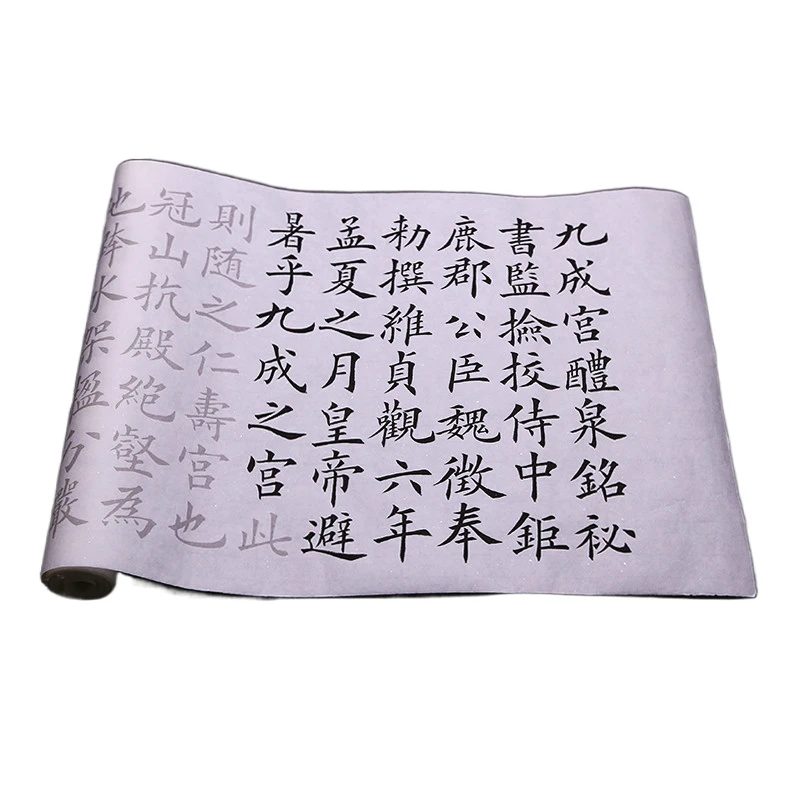 九成宮醴泉銘祕
書監撿挍侍中鉅
鹿郡公臣魏徵奉
勑撰維貞觀六年
孟夏之月皇帝避
暑乎九成之宮此
則随之仁壽宮也
冠山抗殿絕壑為
池跨水架楹分巖